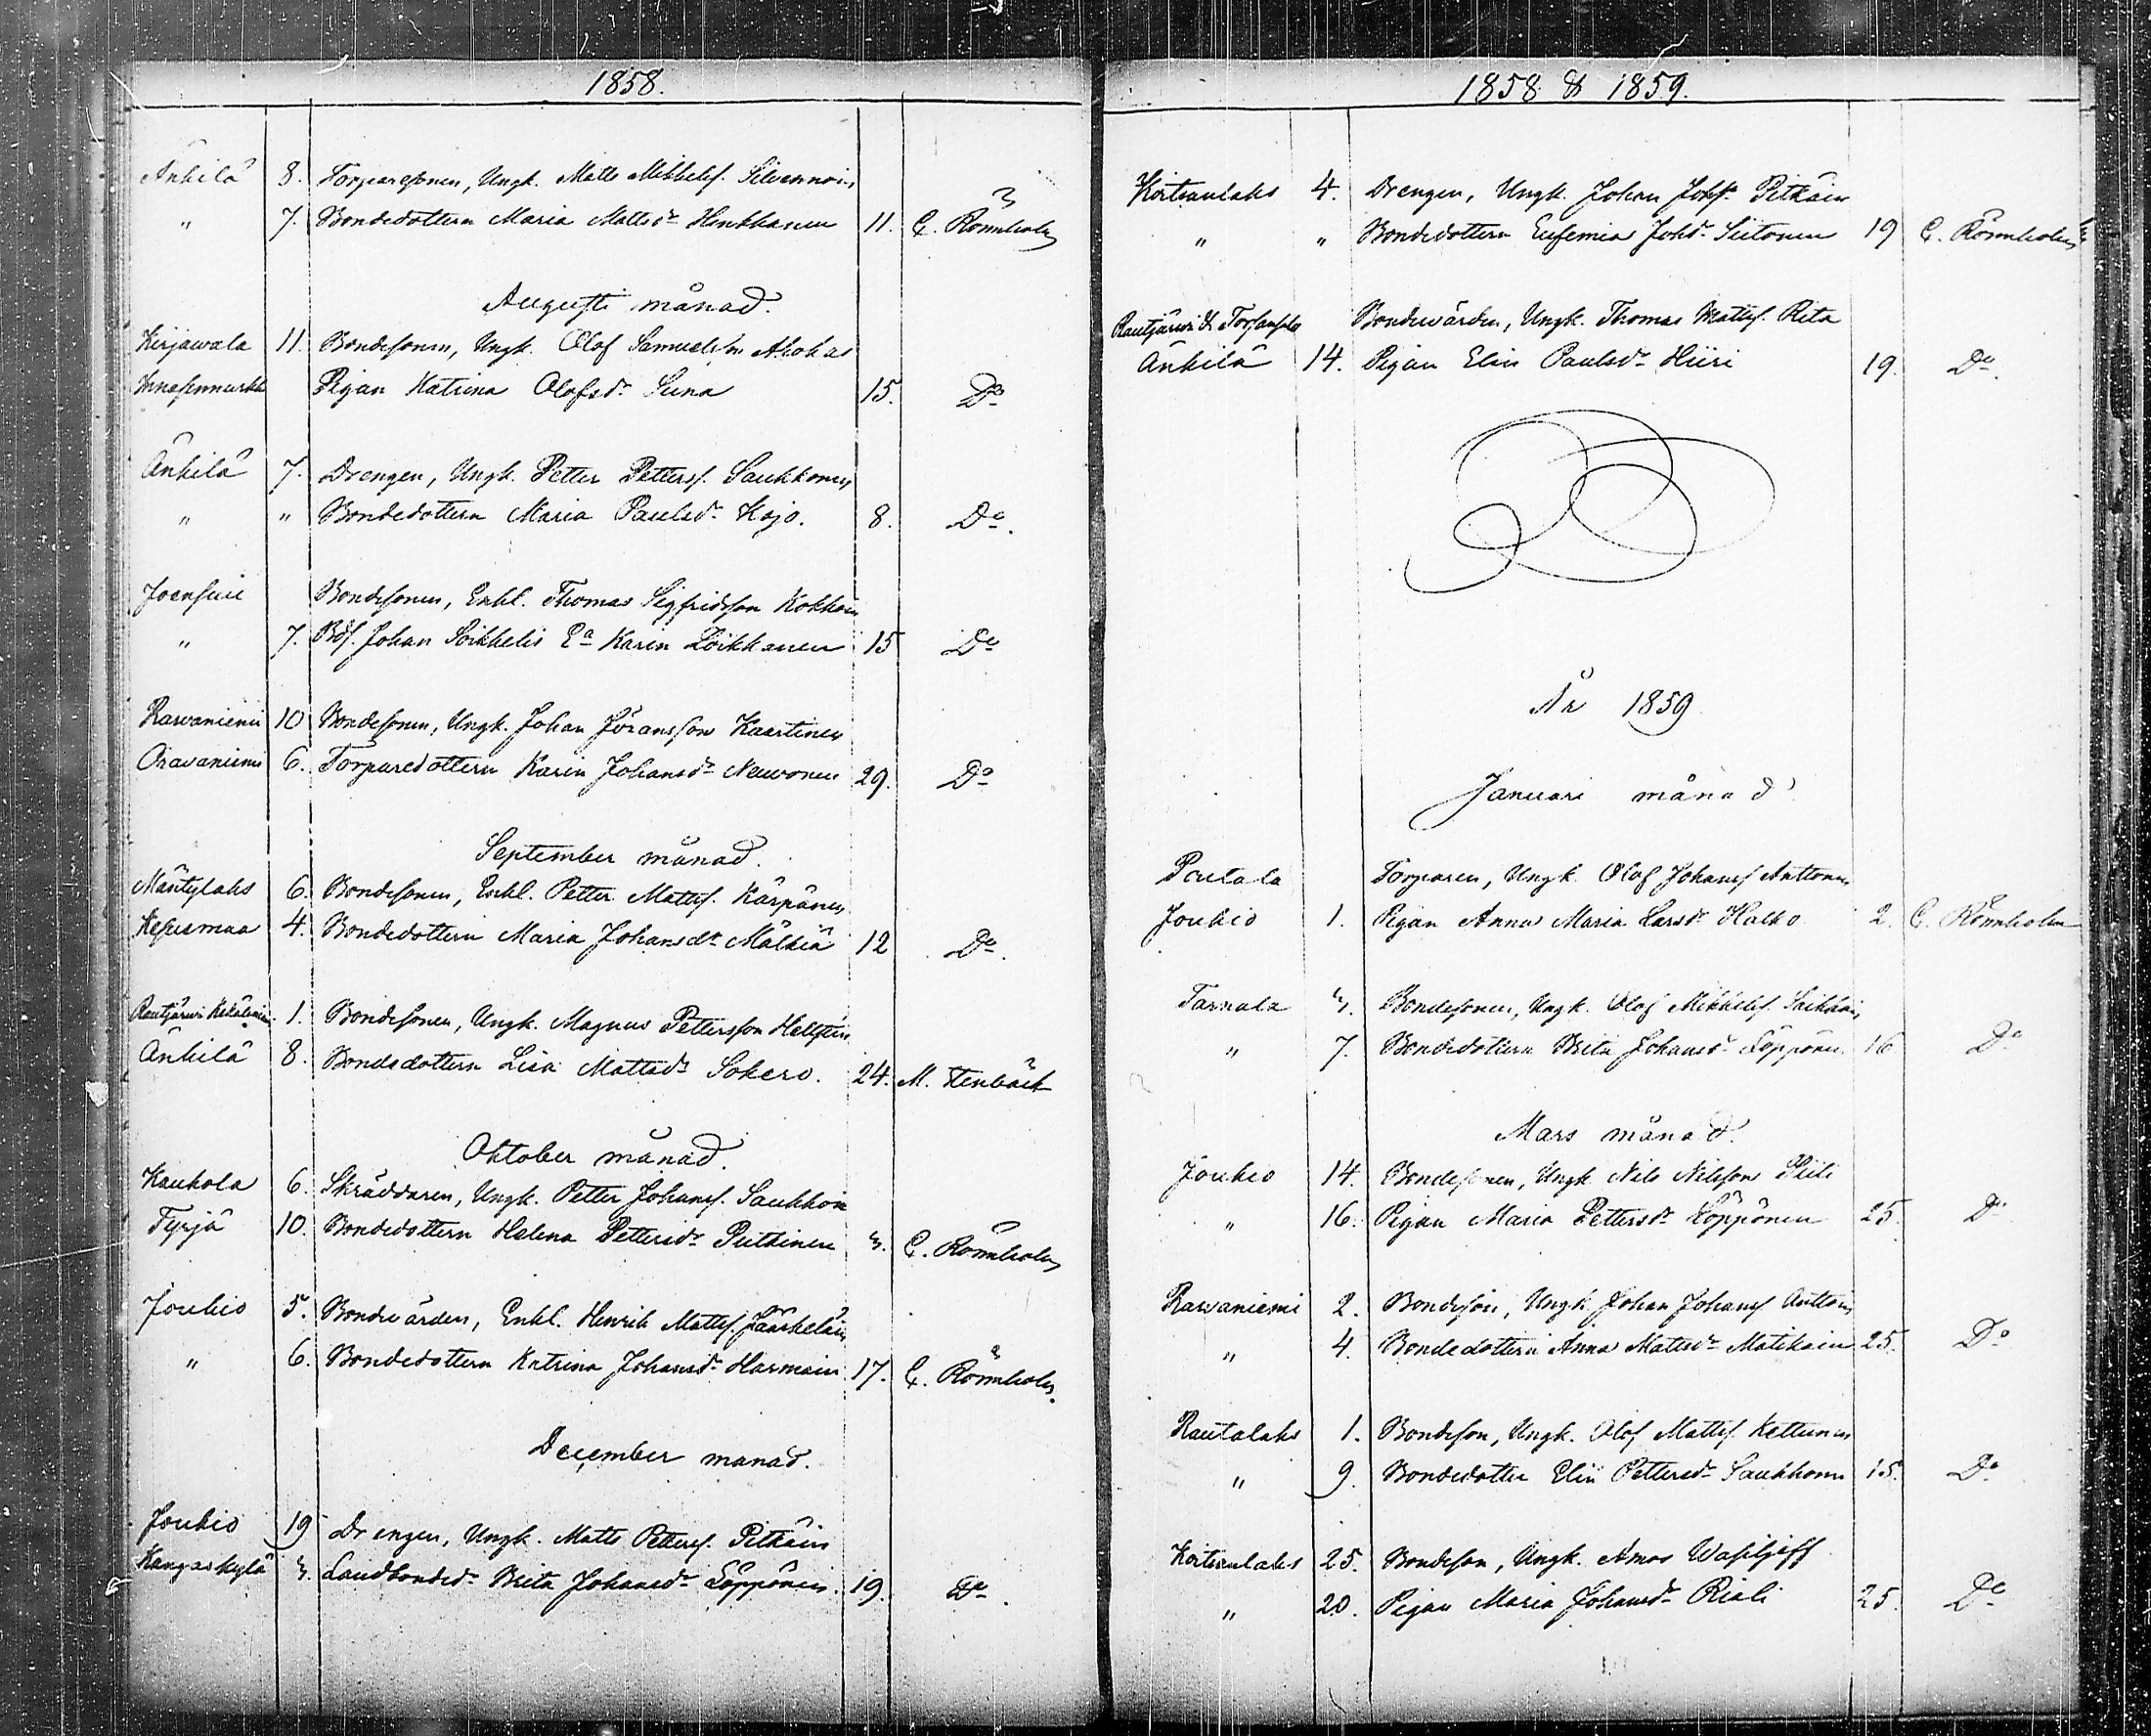 1858.
Änkilä 8. Torparesonen, Ungk. Matts Mikkelss. Silvennoin
" 7. Bondedottern Maria Mattsdr Henkkanen 11. C. Rönnholm
Augusti månad.
Kirjawala 11. Bondesonen, Ungk. Olof Samuelsson Ahokas
Pigan Katrina Olofsdr Suna 15. Do
Änkilä 7. Drengen, Ungk. Petter Petterss. Saukkonen
" " Bondedottern Maria Paulsdr Kojo. 8. Do.
Joensuu Bondesonen, Enkl. Thomas Sigfridsson Kokkoin
" 7. Bdes. Johan Soikkelis Ea Karin Loikkanen 15 Do
Rawaniemi 10 Bondesonen, Ungk. Johan Jöransson Kaartinen
Oravaniemi 6. Torparedottern Karin Johansdr Neuvonen 29. Do
September månad.
Mäntylaks 6. Bondesonen, Enkl. Petter Mattss. Kärpänen
Kesusmaa 4. Bondedottern Maria Johansdr Mälkiä 12 Do.
Rautjärwi 1. Bondesonen, Ungk. Magnus Pettersson
Änkilä 8. Bondedottern Lisa Mattsdr Sokero. 24. M. Stenbäck
Oktober månad.
Kaukola 6. Skräddaren, Ungk. Petter Johanss. Saukkoin
Tyrjä 10. Bondedottern Helena Pettersdr Putkinen 3. C. Rönnholm
Joukio 5. Bondevärden, Enkl. Henrik Mattss. Jääskeläin
" 6. Bondedottern Katrina Johansdr Harmain 17. C. Rönnholm.
December manad.
Joukio 19 Drengen, Ungk. Matts Petterss. Pitkäin
Kangaskylä 3. Landbonded. Brita Johansdr Löppönen. 19. Do.
1858 & 1859.
Koitsanlaks 4. Drengen, Ungk. Johan Johss. Pitkäin
" " Bondedottern Eufemia Johdr Siitonen 19 C. Rönnholm
Rautjärwi & Torsansalo Bondevärden, Ungk. Thomas Mattss. Rita
Änkilä 14. Pigan Elin Paulsdr Hiiri 19. Do.
År 1859
Januari månad
Poutala Torparen, Ungk. Olof Johanss. Anttonen
Joukio 1. Pigan Anna Maria Larsdr Halko 2. C. Rönnholm
Tarnala 3. Bondesonen, Ungk. Olof Mikkelss. Saikkoin
" 7. Bondedottern Brita Johansdr Löppönen 16 Do
Mars månad.
Joukio 14. Bondesonen, Ungk. Nils Nilsson Piili
" 16. Pigan Maria Pettersdr Löppönen 25. Do
Rawaniemi 2. Bondeson, Ungk. Johan Johanss. Anttoin
" 4. Bondedottern Anna Mattsdr Matikain 25. Do
Rautalaks 1. Bondeson, Ungk. Olof Mattss. Kettunen
" 9. Bondedotter Elin Pettersdr Saukkonen 15. Do
Koitsanlaks 25. Bondeson, Ungk. Amos Wasiljeff
" 20. Pigan Maria Johansdr Riali 25. Do